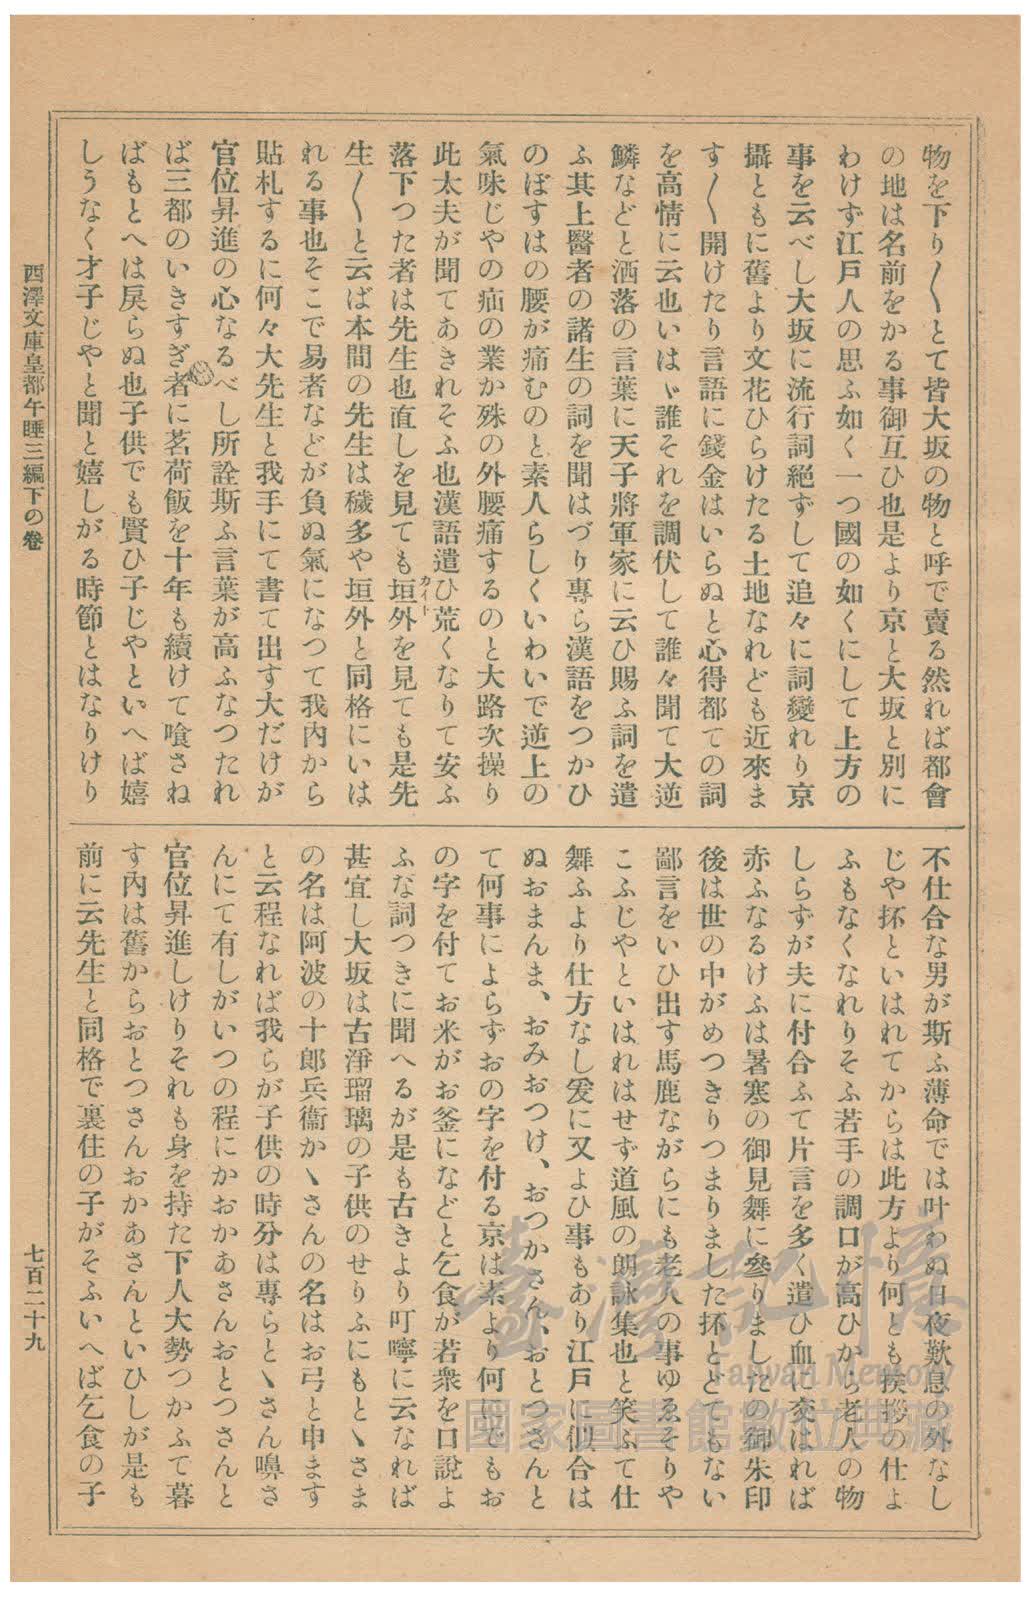 物を下り〳〵とて皆大坂の物と呼で賣る然れば都會
の地は名前をかる事御互ひ也是より京と大坂と別に
わけず江戸人の思ふ如く一つ國の如くにして上方の
事を云べし大坂に流行詞絶ずして追々に詞變れり京
攝ともに舊より文花ひらけたる土地なれども近來ま
す〳〵開けたり言語に錢金はいらぬと心得都ての詞
を高情に云也いはゞ誰それを調伏して誰々聞て大逆
鱗などと洒落の言葉に天子將軍家に云ひ賜ふ詞を遣
ふ其上醫者の諸生の詞を聞はづり專ら漢語をつかひ
のぼすはの腰が痛むのと素人らしくいわいで逆上の
氣味じやの疝の業か殊の外腰痛するのと大路次操り
此太夫が聞てあきれそふ也漢語遣ひ荒くなりて安ふ
落下つた者は先生也直しを見ても垣外を見ても是先
カイト
生〳〵と云ば本間の先生は穢多や垣外と同格にいは
れる事也そこで易者などが負ぬ氣になつて我內から
貼札するに何々大先生と我手にて書て出す大だけが
官位昇進の心なるべし所詮斯ふ言葉が高ふなつたれ
ば三都のいきすぎ者に茗荷飯を十年も續けて喰さね
ばもとへは戻らぬ也子供でも賢ひ子じやといへば嬉
しうなく才子じやと聞と嬉しがる時節とはなりけり
不仕合な男が斯ふ薄命では叶わぬ日夜歎息の外なし
じや抔といはれてからは此方より何とも挨拶の仕よ
ふもなくなれりそふ若手の調口が高ひから老人の物
しらずが夫に付合ふて片言を多く遣ひ血に交はれば
赤ふなるけふは暑寒の御見舞に參りましたの御朱印
後は世の中がめつきりつまりました抔とどてもない
鄙言をいひ出す馬鹿ながらにも老人の事ゆゑそりや
こふじやといはれはせず道風の朗詠集也と笑ふて仕
舞ふより仕方なし爰に又よひ事もあり江戸に似合は
ぬおまんま、おみおつけ、おつかさん、おとつさんと
て何事によらずおの字を付る京は素より何にでもお
の字を付てお米がお釜になどと乞食が若衆を口說よ
ふな詞つきに聞へるが是も古きより叮嚀に云なれば
甚宜し大坂は古淨瑠璃の子供のせりふにもとゝさま
の名は阿波の十郎兵衞かゝさんの名はお弓と申ます
と云程なれば我らが子供の時分は專らとゝさん嚊さ
んにて有しがいつの程にかおかあさんおとつさんと
官位昇進しけりそれも身を持た下人大勢つかふて暮
す內は舊からおとつさんおかあさんといひしが是も
前に云先生と同格で裏住の子がそふいへば乞食の子
西澤文庫皇都午睡三編下の卷
七百二十九
臺灣記憶
Taiwan Memory
國家圖書館數位典藏